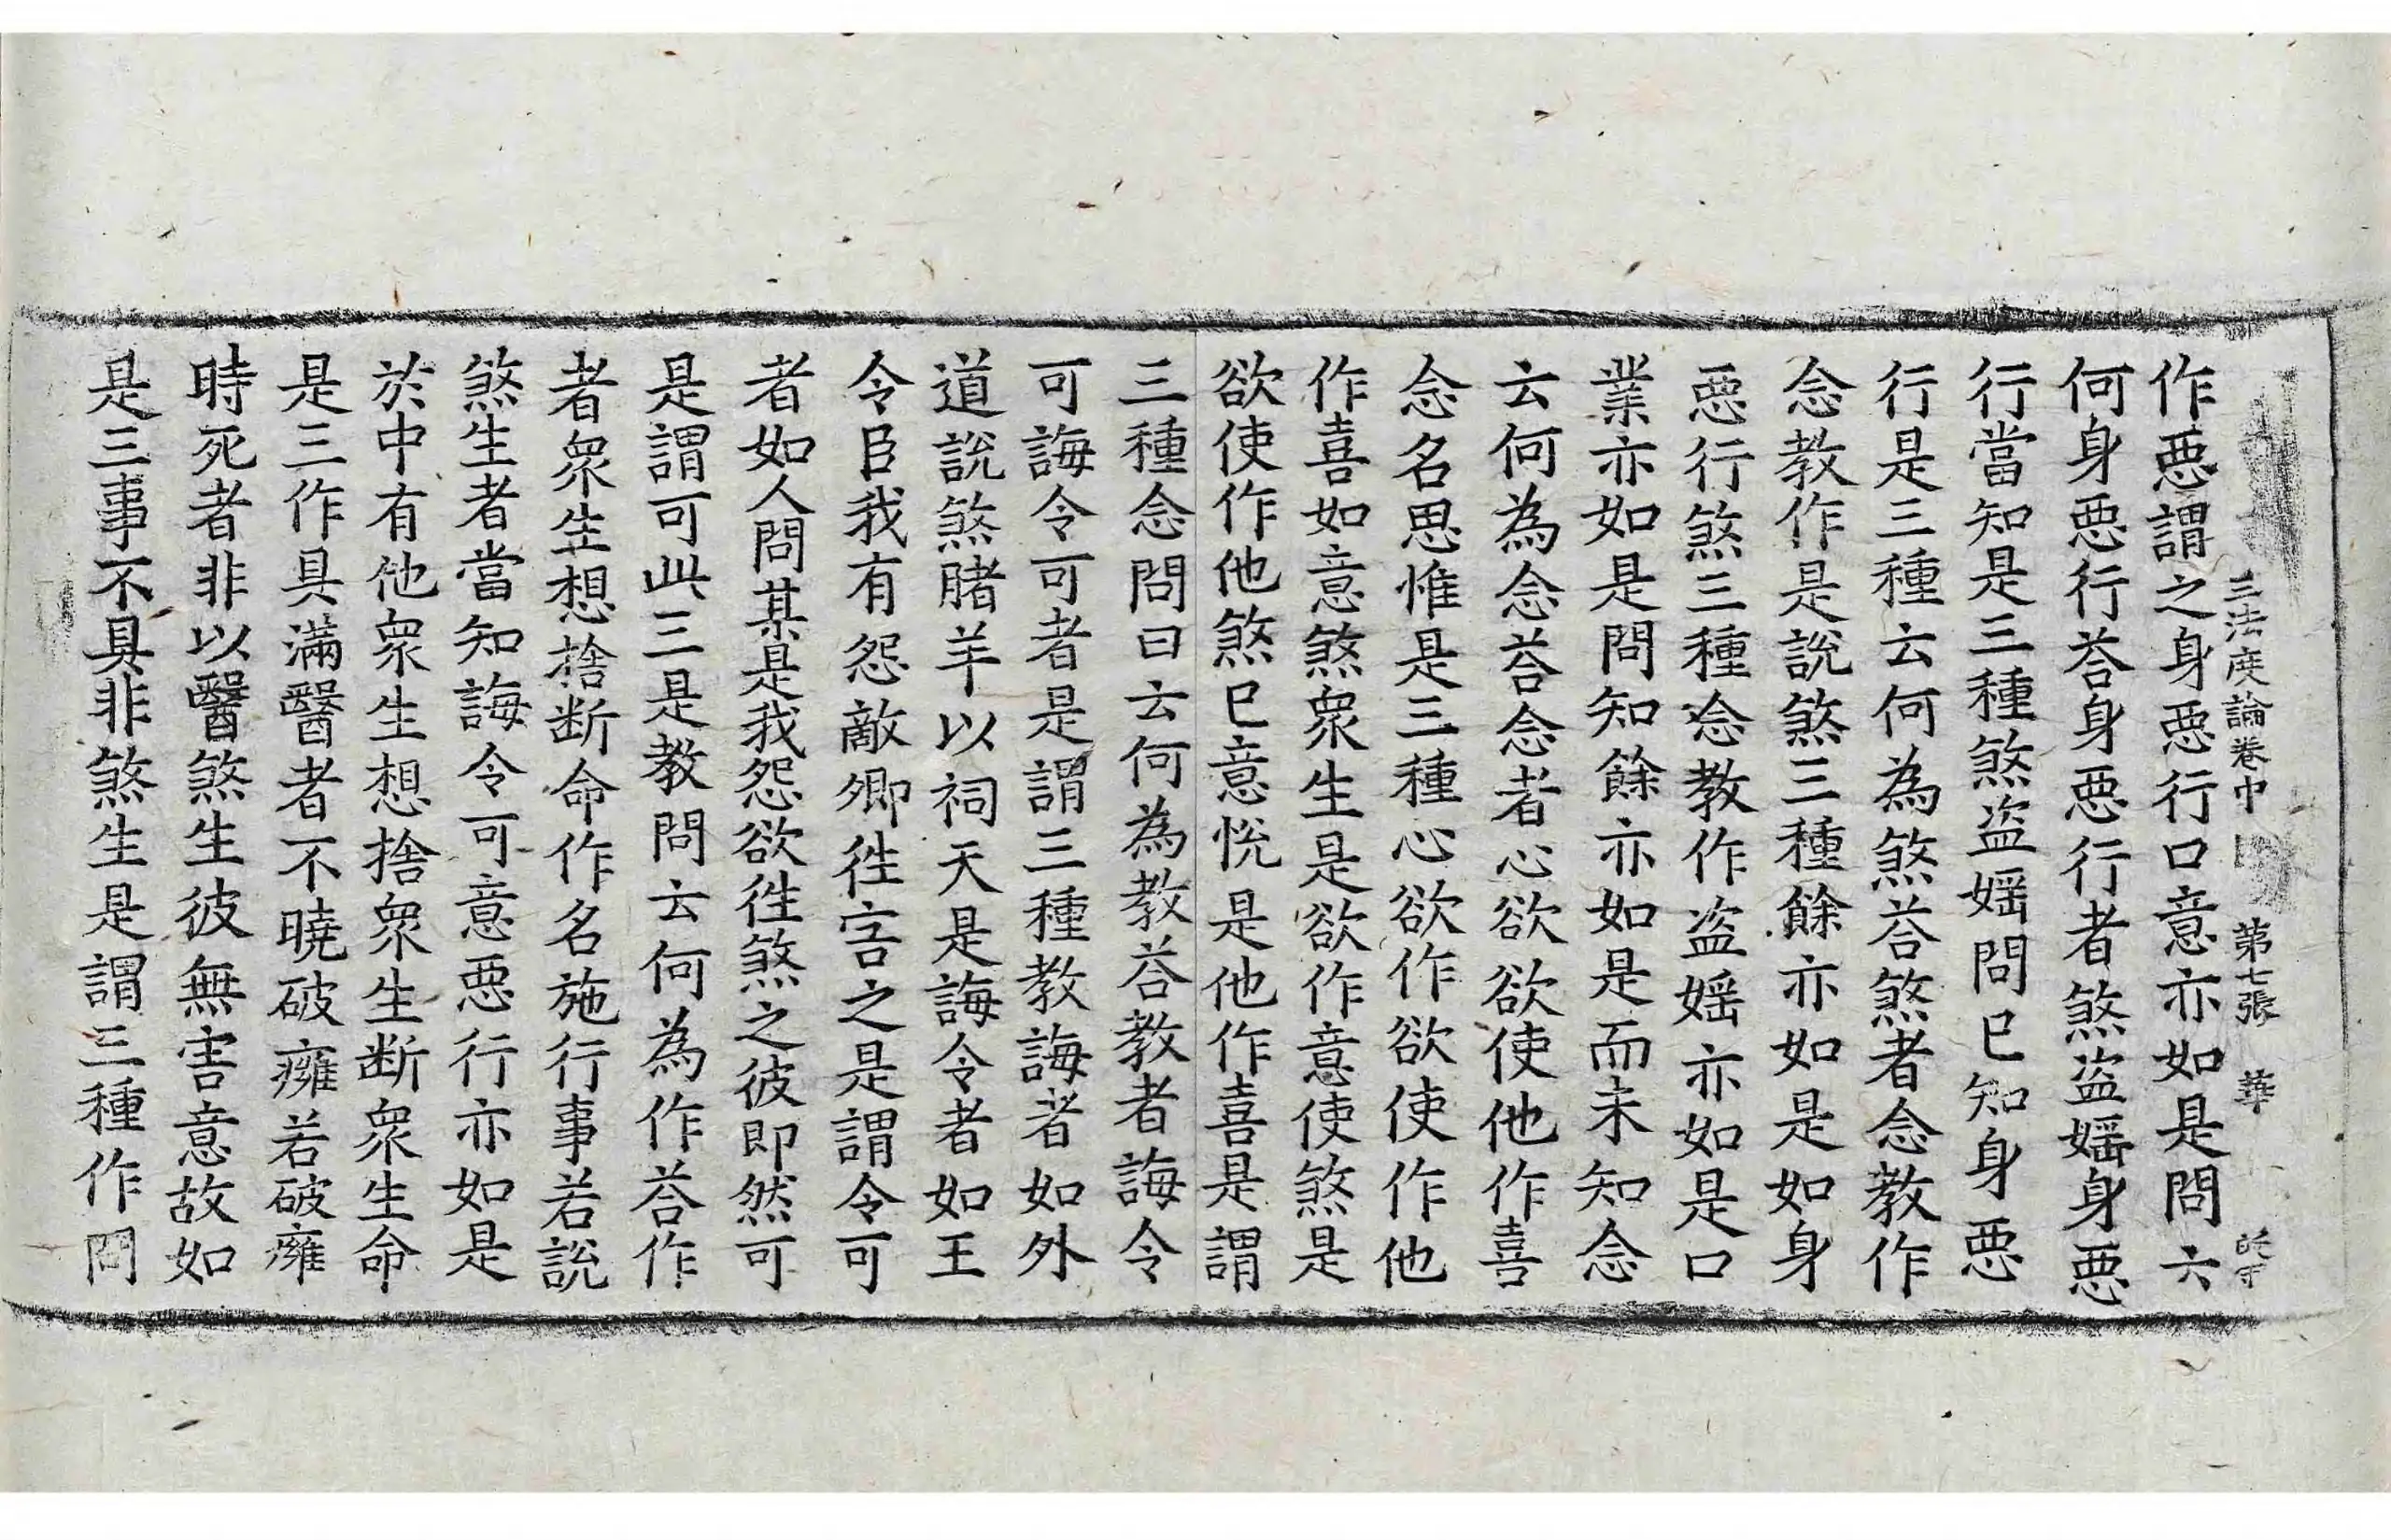 三法度論卷中 第七張 華
作惡謂之身惡行口意亦如是問云
何身惡行荅身惡行者煞盜婬身惡
行當知是三種煞盜婬問已知身惡
行是三種云何為煞荅煞者念教作
念教作是說煞三種餘亦如是如身
惡行煞三種念教作盜婬亦如是口
業亦如是問知餘亦如是而未知念
云何為念荅念者心欲欲使他作喜
念名思惟是三種心欲作欲使作他
作喜如意煞衆生是欲作意使煞是
欲使作他煞已意悅是他作喜是謂
三種念問曰云何為教荅教者誨令
可誨令可者是謂三種教誨者如外
道說煞賭羊以祠天是誨令者如王
令臣我有怨敵卿徃害之是謂令可
者如人問某是我怨欲徃煞之彼即然可
是謂可此三是教問云何為作荅作
者衆生想捨断命作名施行事若說
煞生者當知誨令可意惡行亦如是
於中有他衆生想捨衆生断衆生命
是三作具滿醫者不曉破癰若破癰
時死者非以醫煞生彼無害意故如
是三事不具非煞生是謂三種作問